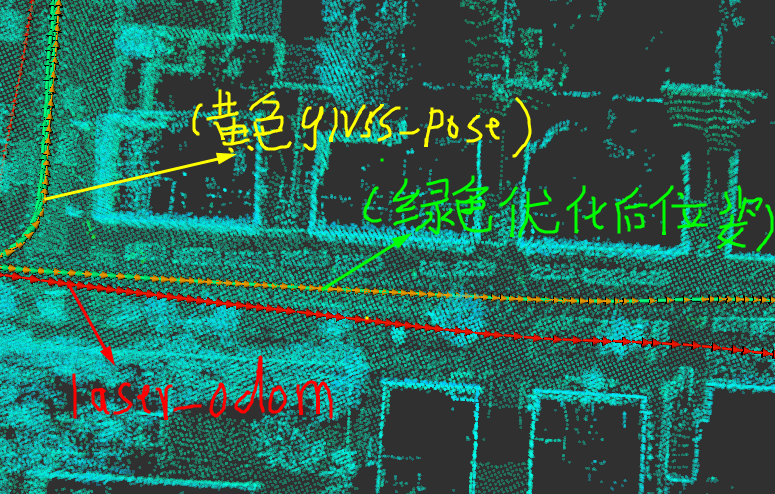 (黄色gNSS_pose)
(绿色优化后位姿)
laser_odom